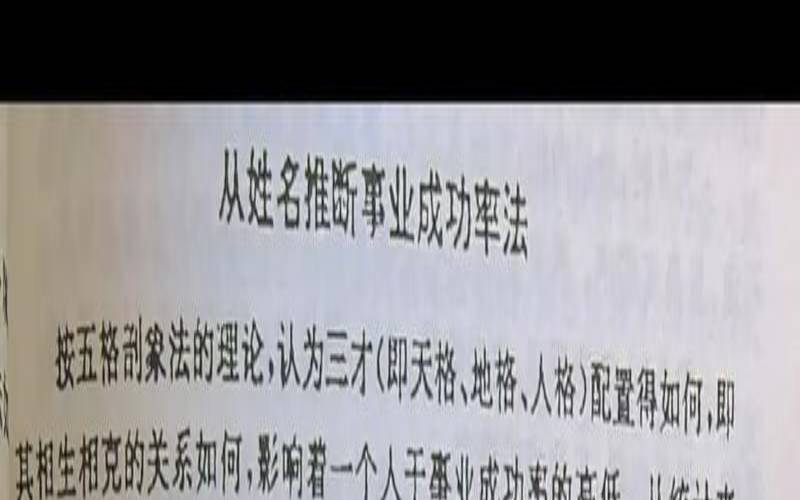 从姓名推断事业成功率法
按五格剖象法的理论,认为三才(即天格、地格、人格)配置得如何,即
其相生相克的关系如何,影响着一个人于事业成功率的高低。从统计